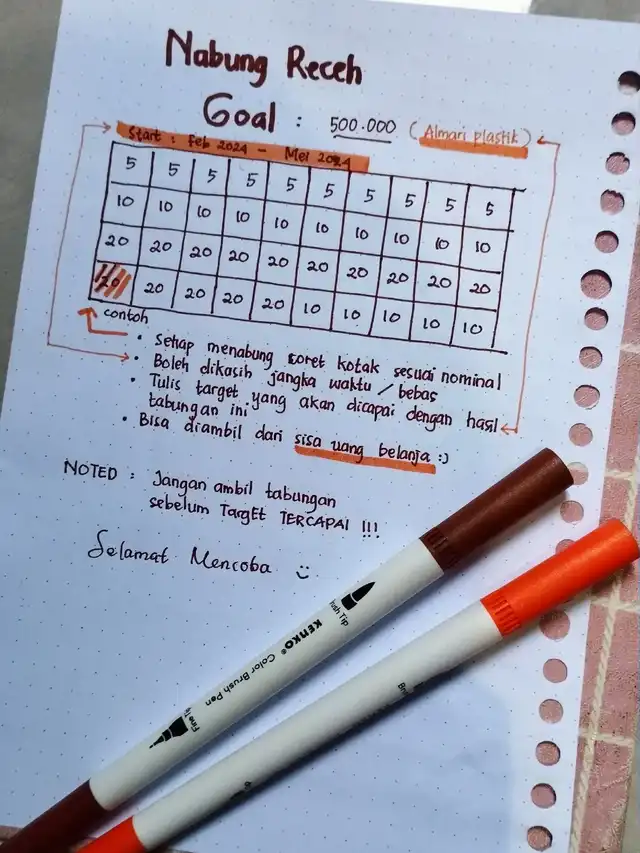 Nabung Receh
Goal : 500.000 (Almari plastik)
Start : Feb 2024 - Mei 2024
5 5 5 5 5 5 5 5 5 5
10 10 10 10 10 10 10 10 10 10
20 20 20 20 20 20 20 20 20 20
20 20 20 20 20 10 10 10 10 10
contoh
• Setiap menabung coret kotak sesuai nominal
• Boleh dikasih jangka waktu / bebas
• Tulis target yang akan dicapai dengan hasil
tabungan ini
• Bisa diambil dari sisa uang belanja :)
NOTED : Jangan ambil tabungan
sebelum TargEt TERCAPAI !!!
Selamat Mencoba
Fine
KENKO® Color Brush Pen
Tip